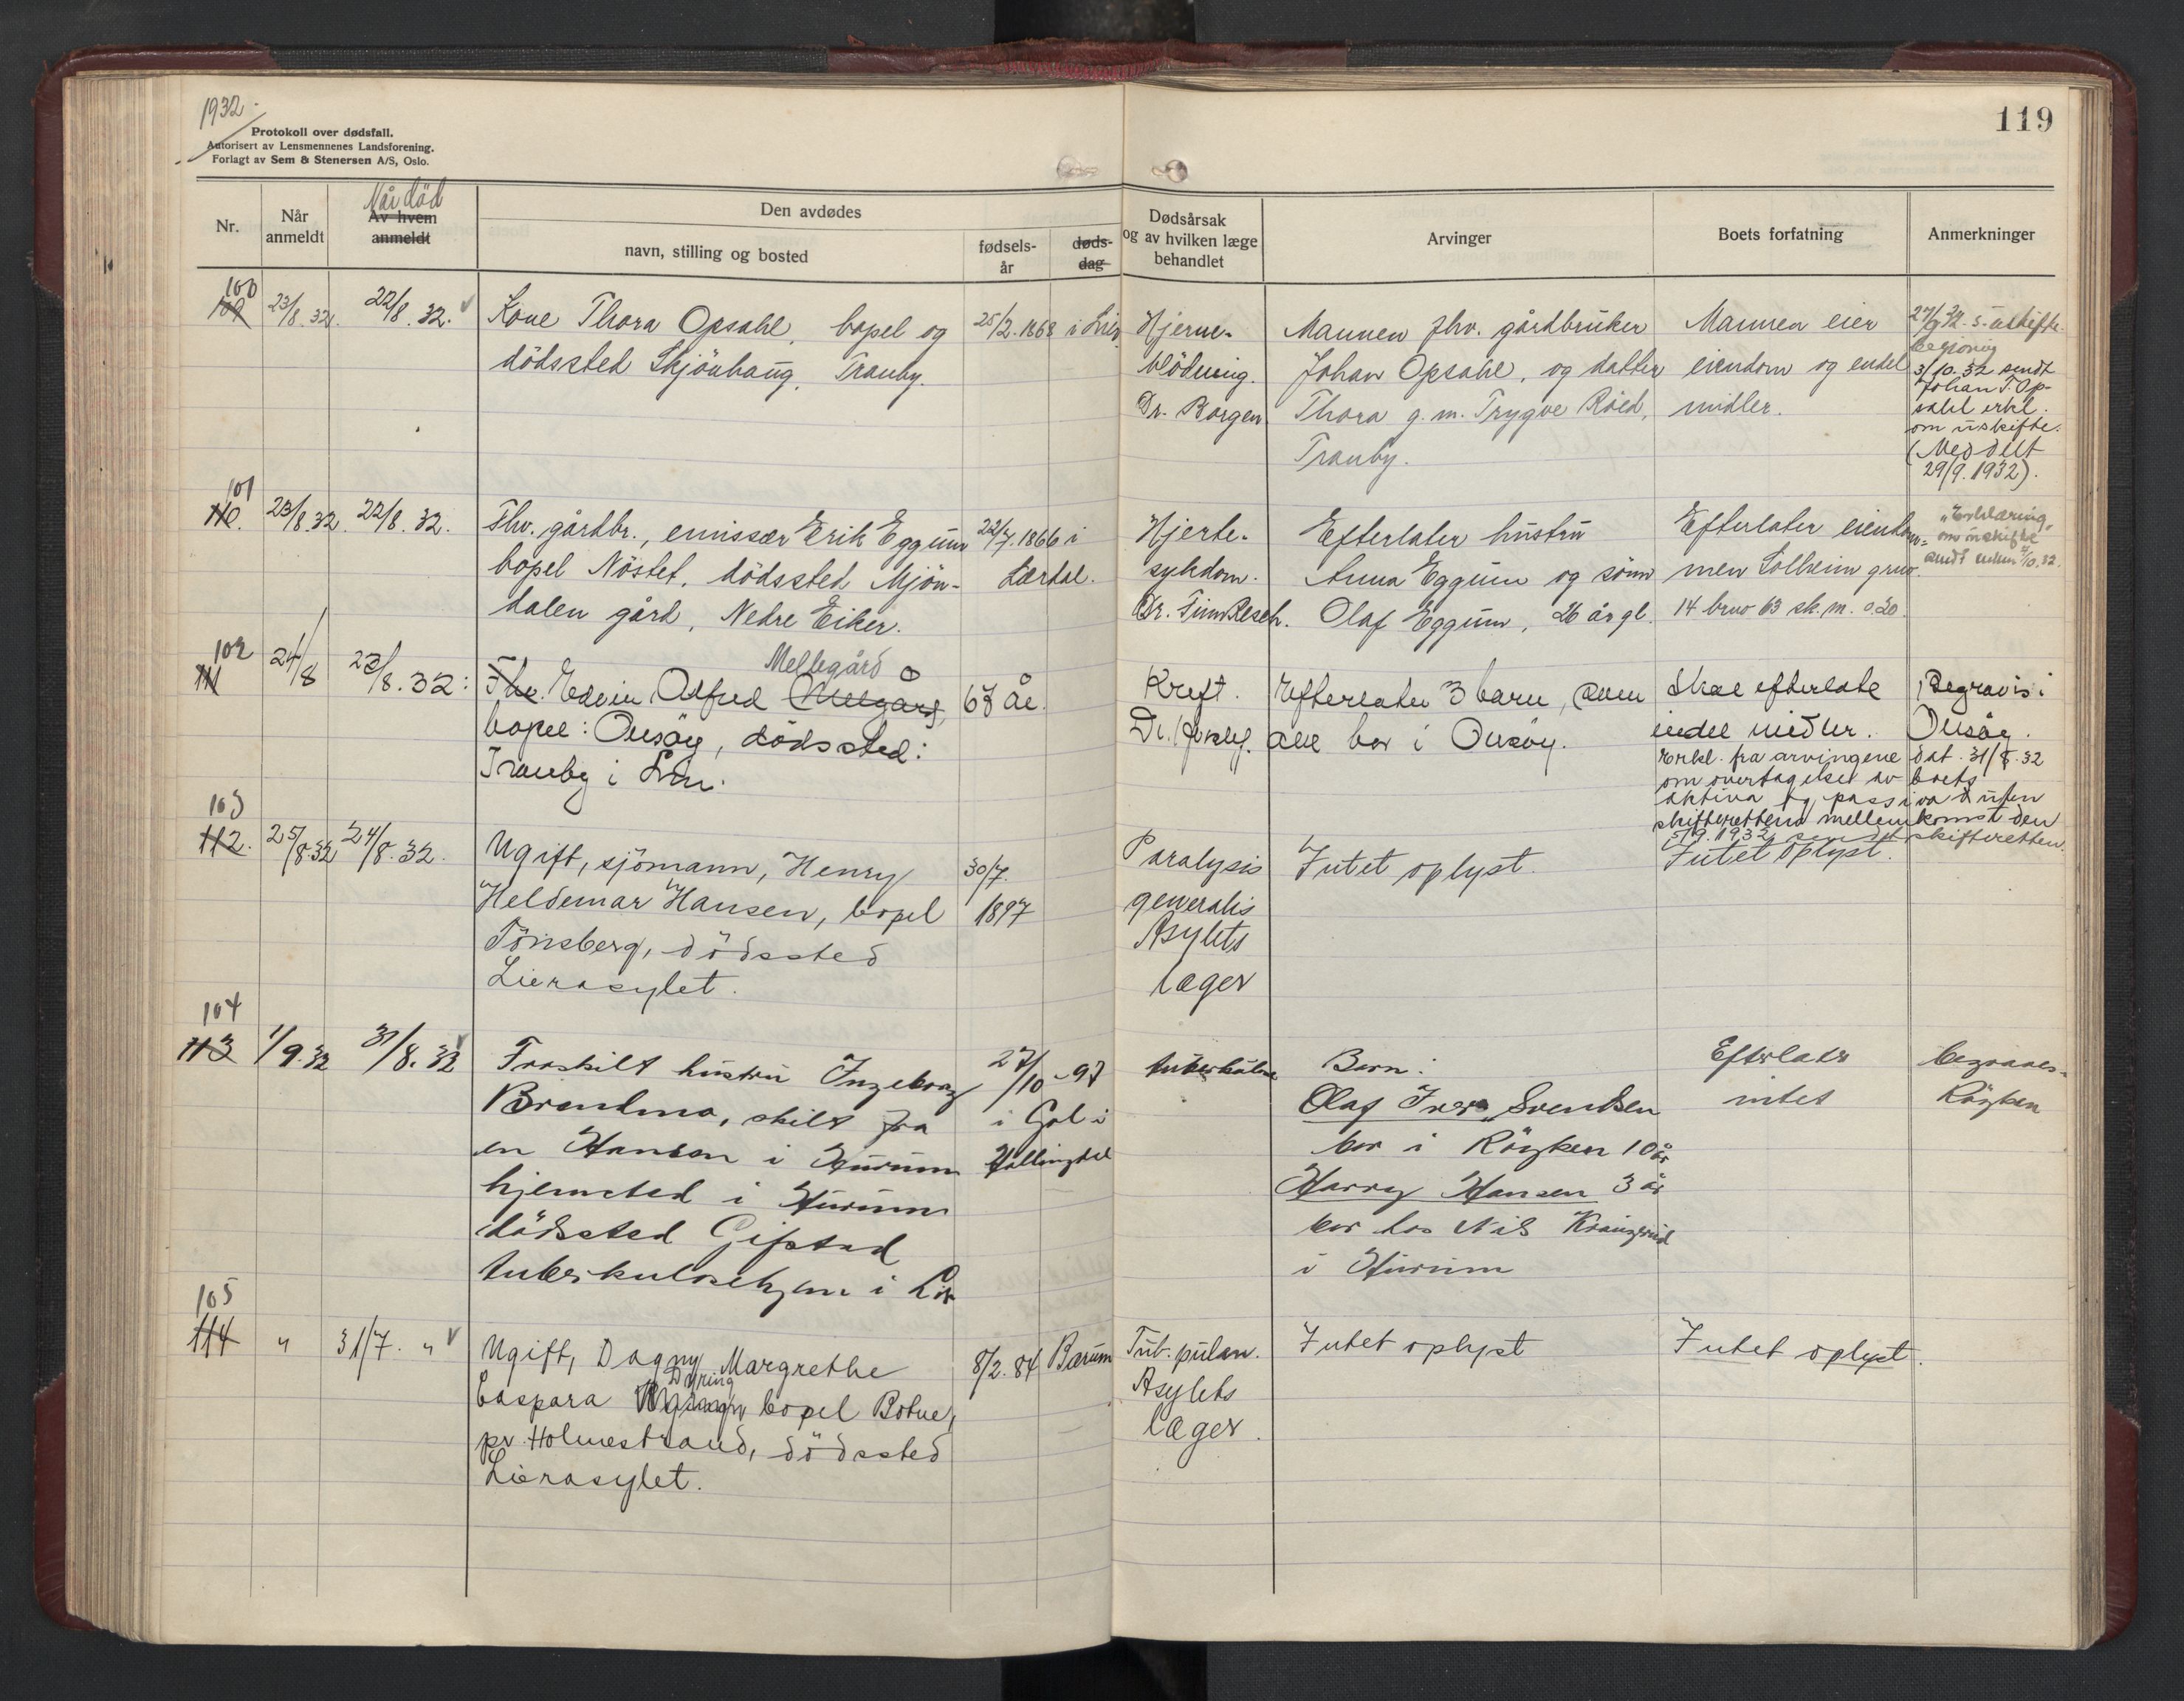 1932.
Protokoll over dødsfall.
Autorisert av Lensmennenes Landsforening.
Forlagt av Sem & Stenersen A/S, Oslo.
119
Nr.
Når anmeldt
Når död
Av hvem anmeldt
Den avdødes
navn, stilling og bosted
fødsels-
år
døds-
dag
Dødsårsak
og av hvilken læge
behandlet
Arvinger
Boets forfatning
Anmerkninger
100
109 23/8.32. 22/8.32. Kone Thora Opsahl, bopel og 25/2.1868 i Lier
dödssted Skjönhaug, Tranby.
Hjerne-
blödning.
Dr. Borgen
Mannen fhv. gårdbruker
Johan Opsahl, og datter
Thora g.m. Trygve Röed,
Tranby.
Mannen eier
eiendom og endel
midler.
27/9 32. s. uskifte-
begjæring
3/10.32 sendt
Johan T. Op-
sahl erkl.
om uskifte.
(Meddelt
29/9.1932).
101
110. 23/8.32. 22/8.32. Fhv. gårdbr., emissær Erik Eggum 22/7.1866 i
bopel Nöstet, dödssted Mjön- Lærdal.
dalen gård, Nedre Eiker.
Hjerte-
sykdom.
Dr.
Efterlater hustru
Anna Eggum og sönn
Olaf Eggum, 26 år gl.
Efterlater eiendom-
men Solheim gnr.
14 brno 63 sk.m. 0.20.
"Erklæring
om uskifte
sendt enken /10.32.
102
111 24/8 23/8.32: Fhv. Edvin Alfred Melgård, 67 år.
Mellegård
bopel: Onsöy, dödssted:
Tranby i Lier.
Kreft.
Dr.
Efterlater 3 barn, som
alle bor i Onsöy.
Skal efterlate
endel midler.
Begravis i
Onsöy.
Erkl. fra arvingene dat. 31/8.32
om overtagelse av boets
aktiva og passiva uten
skifterettens mellemkomst den
5/9.1932 sendt skifteretten.
103
112. 25/8.32 24/8.32. Ugift, sjömann, Henry 30/7.
Heldemar Hansen, bopel 1897
Tönsberg, dödssted
Lierasylet.
Paralysis
generalis
Asylets
læger
Intet oplyst.
Intet oplyst.
104
113 1/9.32 31/8.32 Fraskilt hustru Ingeborg 27/10-97
Brenlmo, skilt fra i Gol i
en Hansen i Hurum Hallingdal
hjemsted i Hurum
dödssted Gifstad
tuberkulosehjem i Lier
tuberkulose
Barn:
Olaf Iver Svendsen
bor i Röyken 10 år
Harry Hansen 3 år
bor hos Nils
i Hurum
Efterlater
intet
begraves
Röyken
105
114 " 31/7. " Ugift, Dagny Margrethe 8/2.84 Bærum
Dyring
Caspara bopel Botne,
pr. Holmestrand, dödssted
Lierasylet.
Tub. pulm.
Asylets
læger.
Intet oplyst
Intet oplyst.